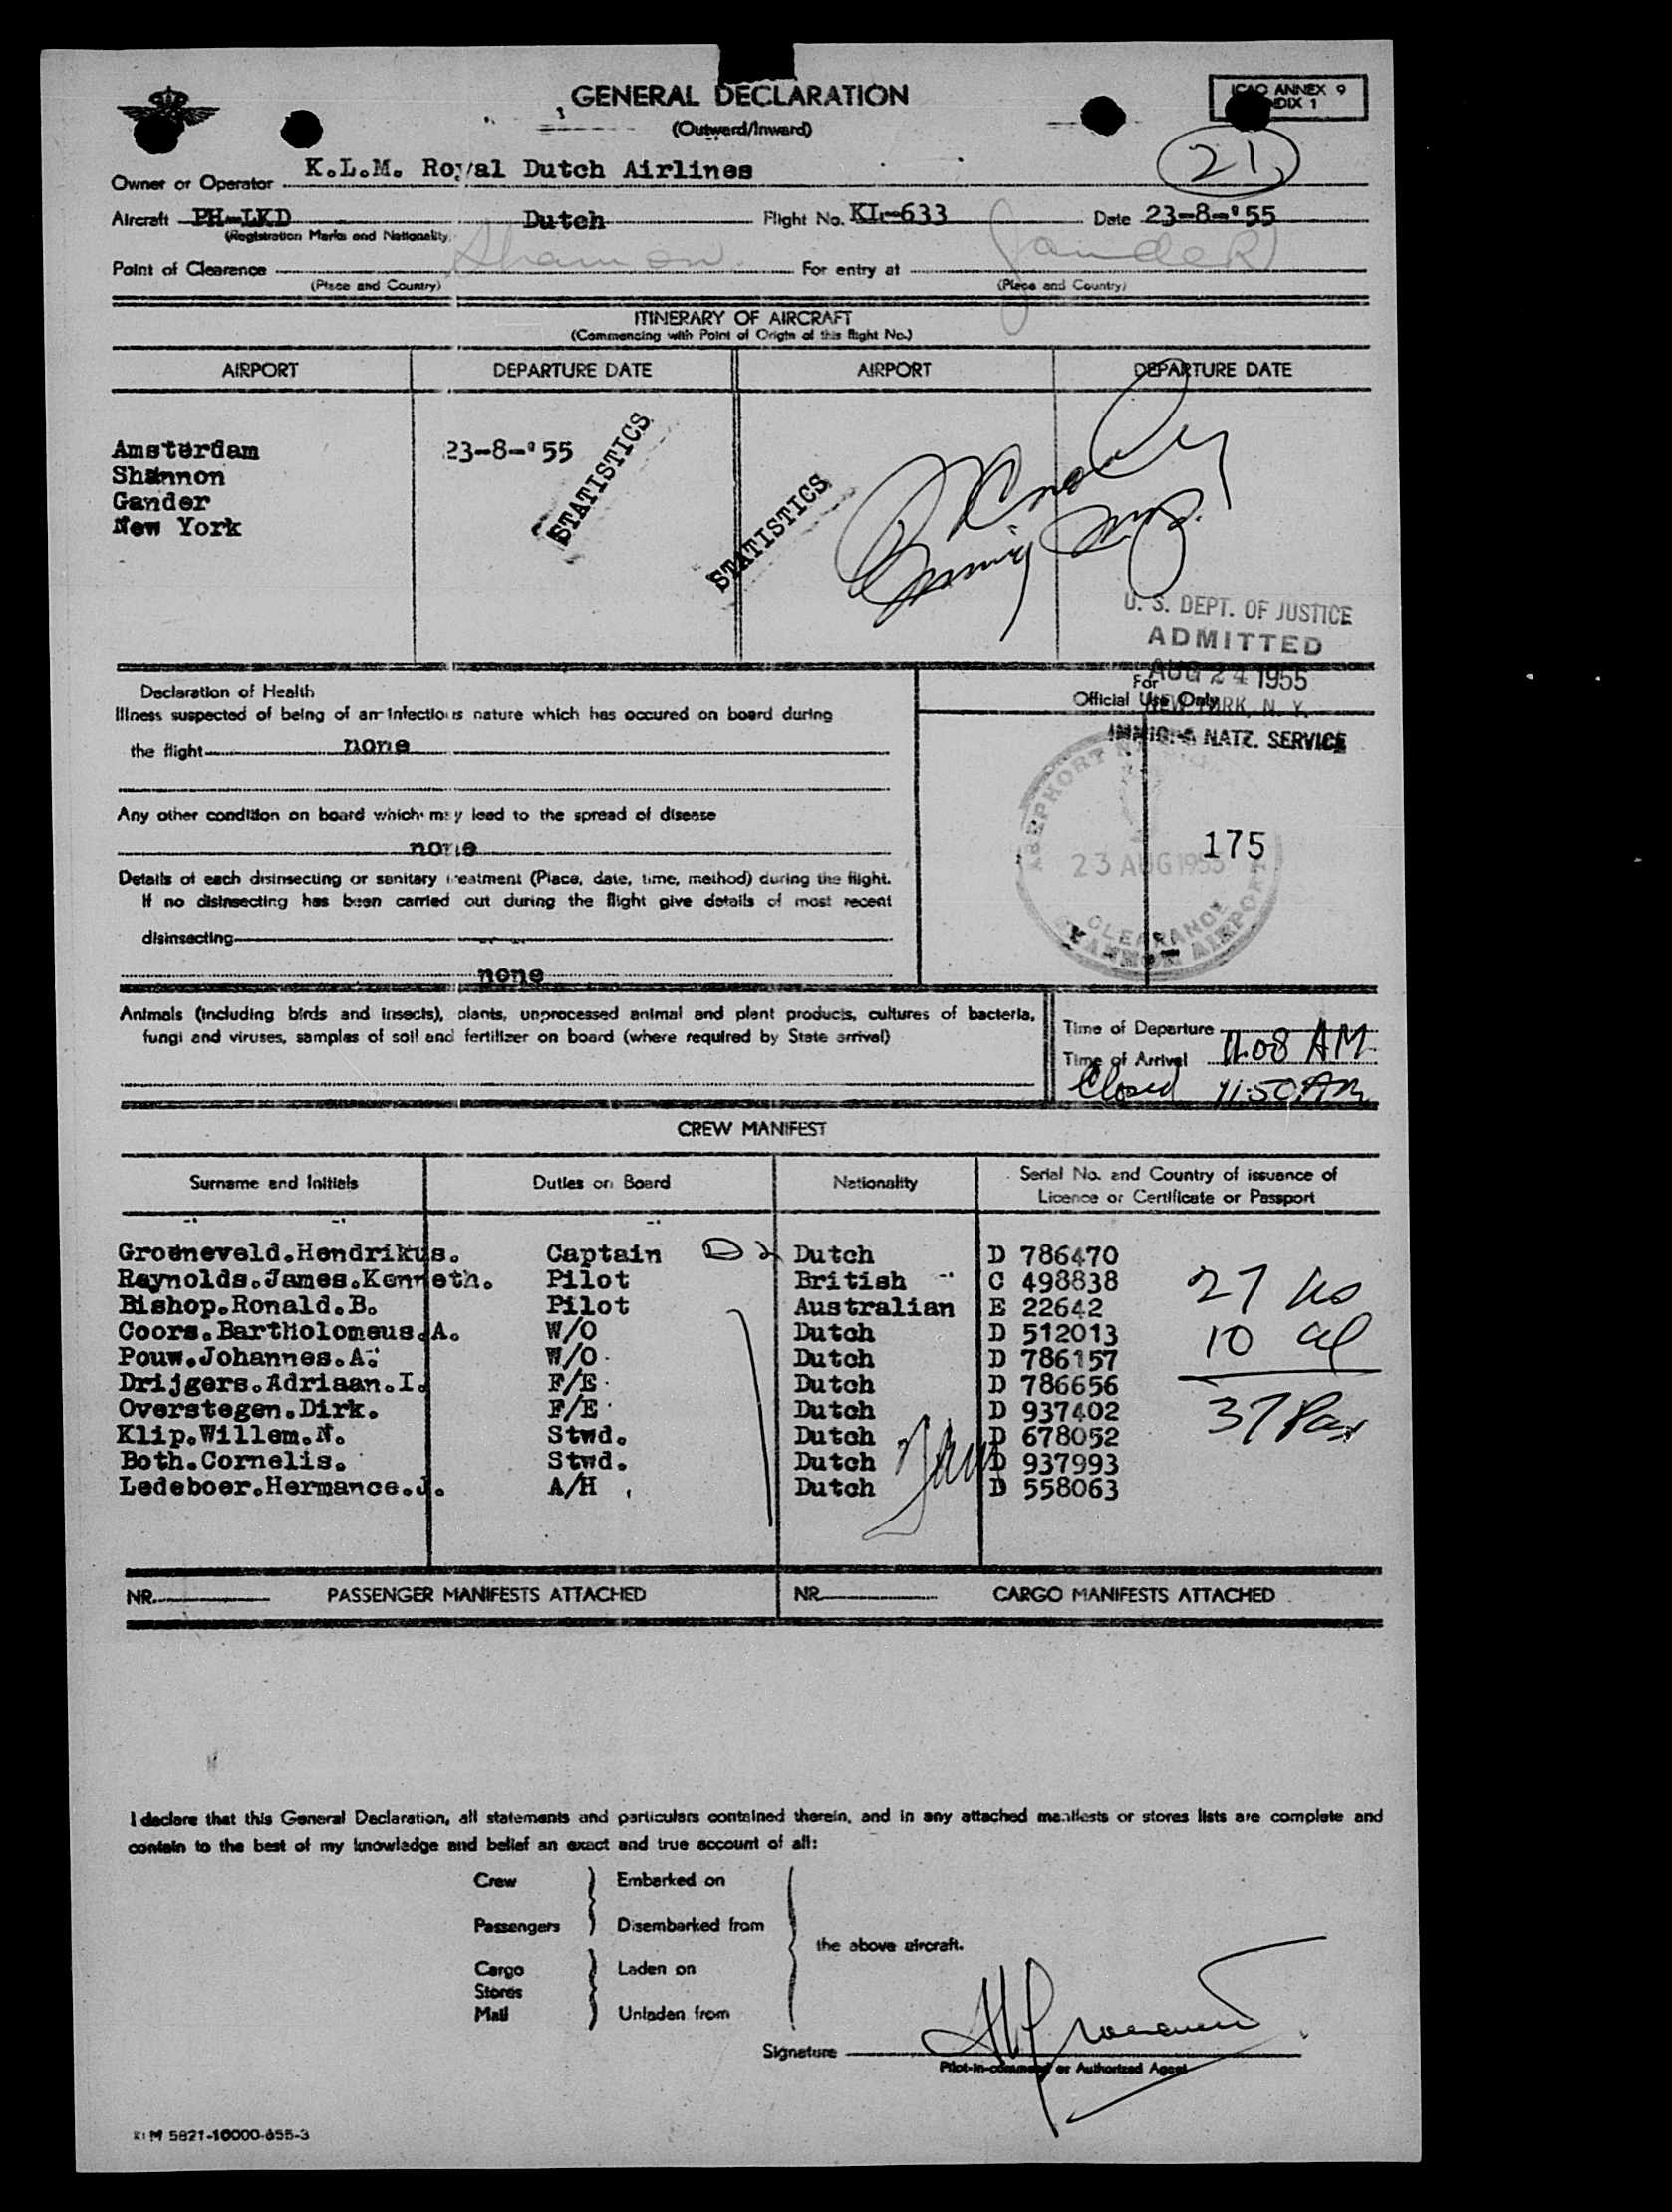 GENERAL DECLARATION
(Outward/Inward)
ICAO ANNEX 9
DIX 1
21
Owner or Operator K.L.M. Royal Dutch Airlines
Aircraft PH-LKD Dutch Flight No. KL-633 Date 23-8-'55
(Registration Marks and Nationality)
Point of Clearence Shannon For entry at Gander
(Place and Country) (Place and Country)
ITINERARY OF AIRCRAFT
(Commencing with Point of Origin of this flight No.)
AIRPORT DEPARTURE DATE AIRPORT DEPARTURE DATE
Amsterdam 23-8-'55
Shannon
Gander
New York
STATISTICS
STATISTICS
U. S. DEPT. OF JUSTICE
ADMITTED
AUG 24 1955
NEW YORK, N. Y.
IMMIG. & NATZ. SERVICE
For
Official Use Only
Declaration of Health
Illness suspected of being of an infectious nature which has occured on board during
the flight none
Any other condition on board which may lead to the spread of disease
none
Details of each disinsecting or sanitary treatment (Place, date, time, method) during the flight.
If no disinsecting has been carried out during the flight give details of most recent
disinsecting
none
175
23 AUG 1955
CLEARANCE
SHANNON AIRPORT
Animals (including birds and insects), plants, unprocessed animal and plant products, cultures of bacteria,
fungi and viruses, samples of soil and fertilizer on board (where required by State arrival)
Time of Departure
Time of Arrival 11.08 AM
Closed 11:50 AM
CREW MANIFEST
Surname and Initials Duties on Board Nationality Serial No. and Country of issuance of
Licence or Certificate or Passport
Groeneveld.Hendrikus. Captain Dutch D 786470
Raynolds.James.Kenneth. Pilot British C 498838
Bishop.Ronald.B. Pilot Australian E 22642
Coors.Bartholomeus.A. W/O Dutch D 512013
Pouw.Johannes.A. W/O Dutch D 786157
Drijgers.Adriaan.I. F/E Dutch D 786656
Overstegen.Dirk. F/E Dutch D 937402
Klip.Willem.N. Stwd. Dutch D 678052
Both.Cornelis. Stwd. Dutch D 937993
Ledeboer.Hermance.J. A/H Dutch D 558063
27 us
10 al
37 Pax
NR. PASSENGER MANIFESTS ATTACHED NR. CARGO MANIFESTS ATTACHED
I declare that this General Declaration, all statements and particulars contained therein, and in any attached manifests or stores lists are complete and
contain to the best of my knowledge and belief an exact and true account of all:
Crew Embarked on
Passengers Disembarked from
the above aircraft.
Cargo Laden on
Stores
Mail Unladen from
Signature
Pilot-in-command or Authorized Agent
KLM 5821-10000-655-3